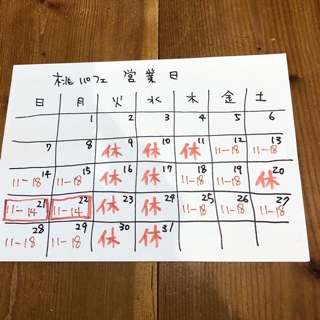 桃パフェ 営業日
日 月 火 水 木 金 土
1 2 3 4 5 6
7 8 9 10 11 12 13
休 休 休 11-18 11-18
14 15 16 17 18 19 20
11-18 11-18 休 休 11-18 11-18 休
21 22 23 24 25 26 27
11-14 11-14 休 休 11-18 11-18 11-18
28 29 30 31
11-18 11-18 休 休